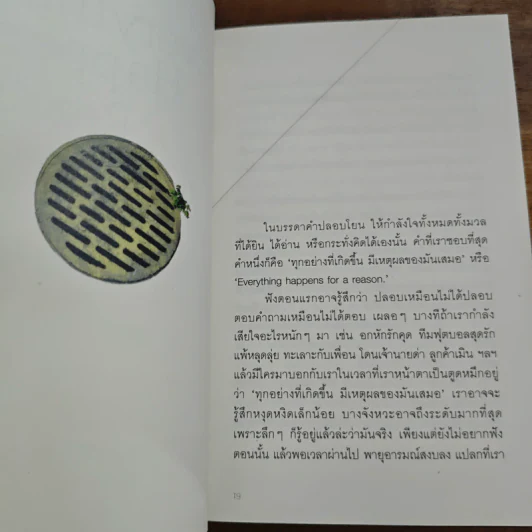 ในบรรดาคำปลอบโยน ให้กำลังใจทั้งหมดทั้งมวล
ที่ได้ยิน ได้อ่าน หรือกระทั่งคิดได้เองนั้น คำที่เราชอบที่สุด
คำหนึ่งก็คือ ‘ทุกอย่างที่เกิดขึ้น มีเหตุผลของมันเสมอ’ หรือ
‘Everything happens for a reason.’
ฟังตอนแรกอาจรู้สึกว่า ปลอบเหมือนไม่ได้ปลอบ
ตอบคำถามเหมือนไม่ได้ตอบ เผลอๆ บางทีถ้าเรากำลัง
เสียใจอะไรหนักๆ มา เช่น อกหักรักคุด ทีมฟุตบอลสุดรัก
แพ้หลุดลุ่ย ทะเลาะกับเพื่อน โดนเจ้านายด่า ลูกค้าเมิน ฯลฯ
แล้วมีใครมาบอกกับเราในเวลาที่เราหน้าดำเป็นตูดหมึกอยู่
ว่า ‘ทุกอย่างที่เกิดขึ้น มีเหตุผลของมันเสมอ’ เราอาจจะ
รู้สึกหงุดหงิดเล็กน้อย บางจังหวะอาจถึงระดับมากที่สุด
เพราะลึกๆ ก็รู้อยู่แล้วล่ะว่ามันจริง เพียงแต่ยังไม่อยากฟัง
ตอนนั้น แล้วพอเวลาผ่านไป พายุอารมณ์สงบลง แปลกที่เรา
19